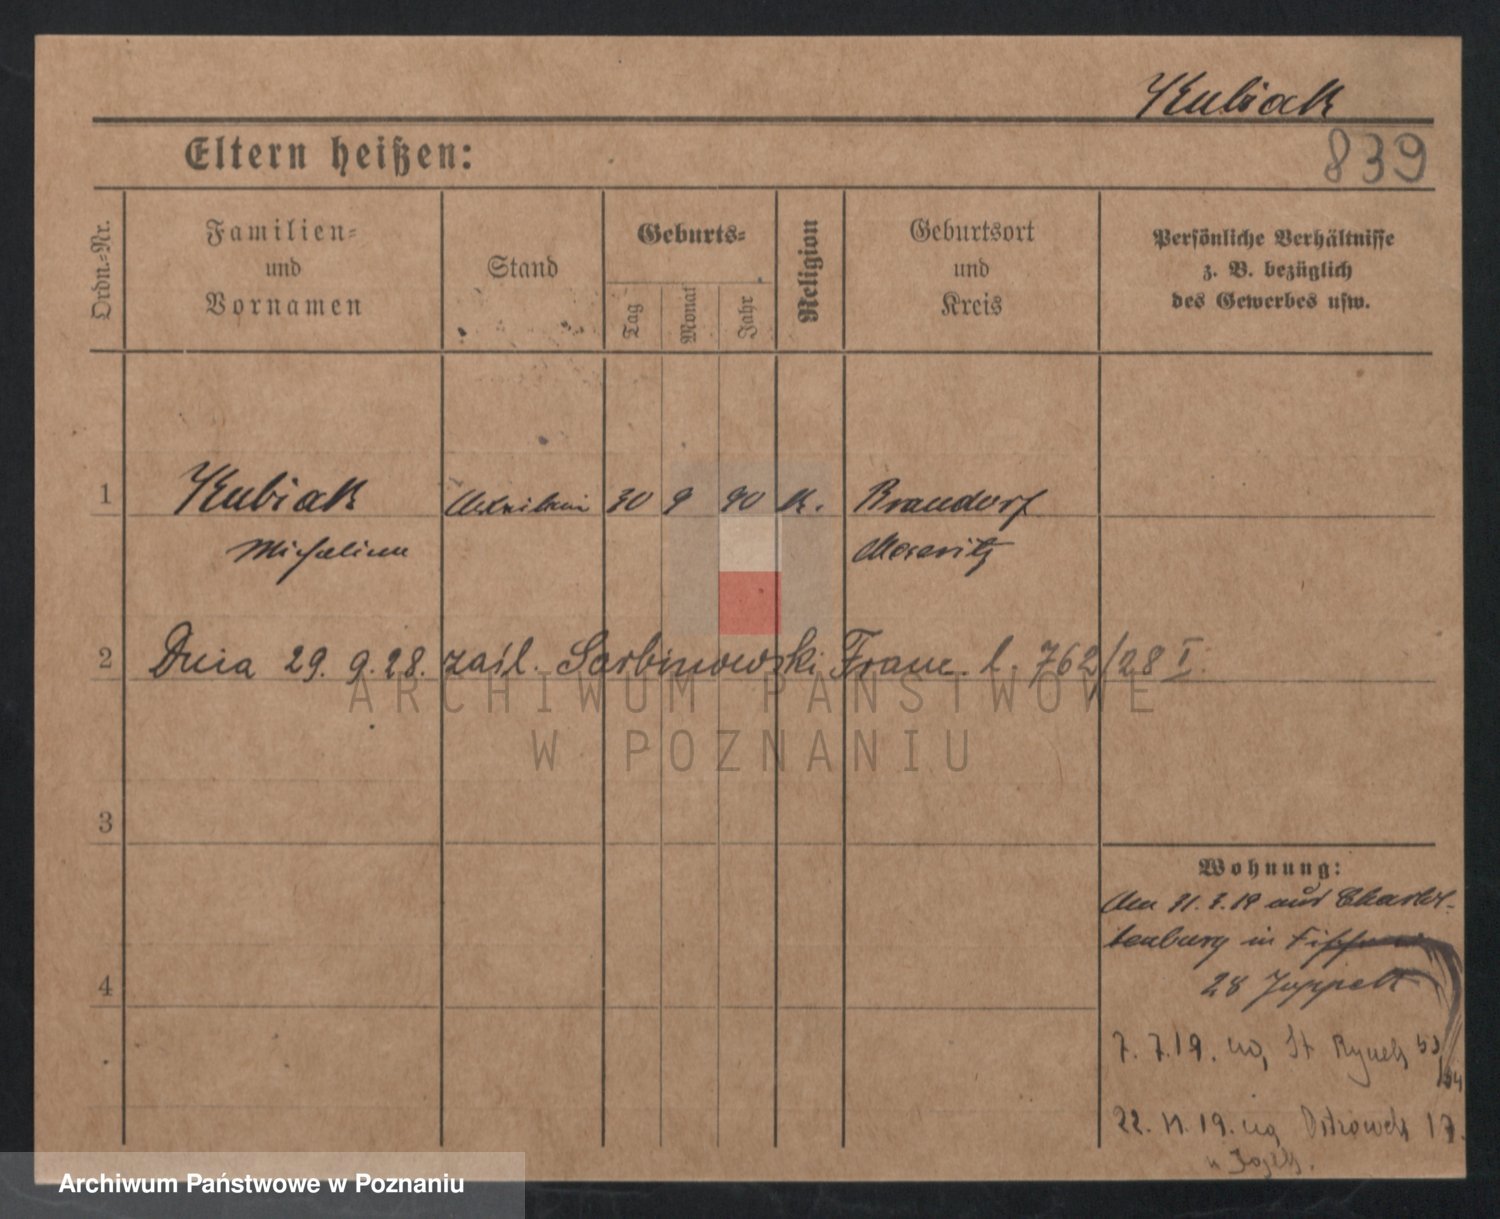 Kubiak
839
Eltern heißen:
Ordn.-Nr.
Familien-
und
Vornamen
Stand
Geburts-
Tag
Monat
Jahr
Religion
Geburtsort
und
Kreis
Persönliche Verhältnisse
z. B. bezüglich
des Gewerbes usw.
1 Kubiak 30 9 90 K. Brandorf
Michalina Meseritz
2 Dnia 29. 9. 28. zaśl. Sarbinowski Franc. l. 762/28 I.
ARCHIWUM PAŃSTWOWE
W POZNANIU
3
Wohnung:
aus Charlot-
tenburg in
4
28
7. 7. 19. na St Rynek 53
/54
22. 11. 19. na Ostrówek 17.
Archiwum Państwowe w Poznaniu